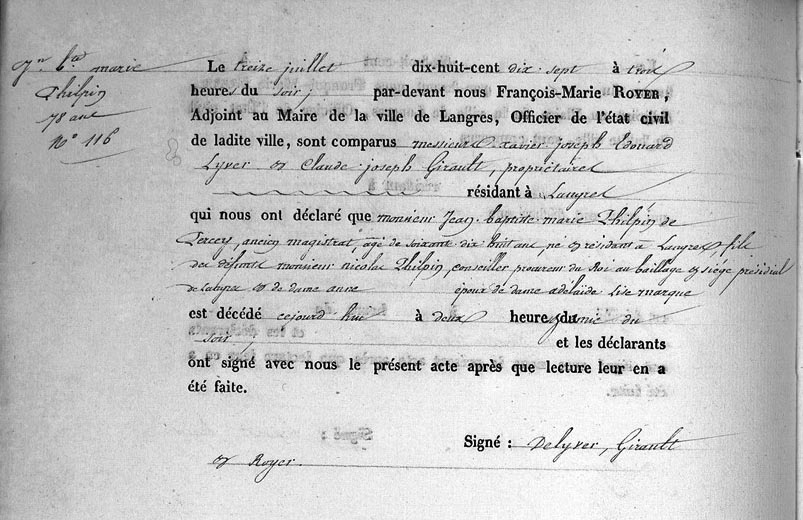 Jn. bte. marie
Philpin
78 ans
No. 116
Le treize juillet dix-huit-cent dix-sept à trois
heures du soir, par-devant nous François-Marie ROYER,
Adjoint au Maire de la ville de Langres, Officier de l'état civil
de ladite ville, sont comparus messieurs xavier joseph Edouard
Lyver et Claude joseph Girault, propriétaires
résidant à Langres
qui nous ont déclaré que monsieur Jean-baptiste-marie Philpin de
Percey, ancien magistrat, agé de soixante dix huit ans, né et résidant à Langres, fils
des défunts monsieur nicolas Philpin, conseiller procureur du Roi au baillage et siège présidial
de Langres et de dame anne époux de dame adelaïde Lise marque
est décédé cejourd'hui à deux heures du
soir, et les déclarants
ont signé avec nous le présent acte après que lecture leur en a
été faite.
Signé : Delyver, Girault
et Royer.